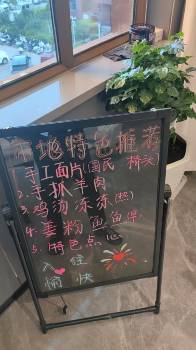 本地特色推荐
1.手工面片(国民桥头)
2.手抓羊肉
3.鸡汤冻冻(热)
4.姜粉鱼鱼
5.特色点心
入住
愉快